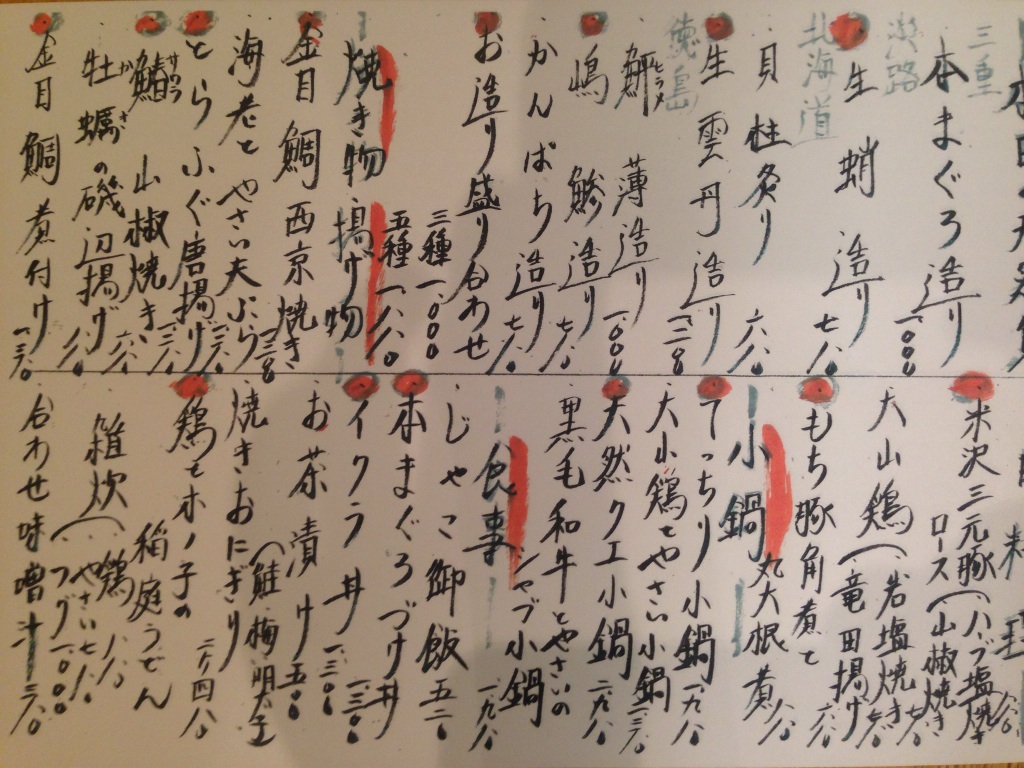 三重
本まぐろ造り 一〇〇〇
淡路
生蛸造り 七八〇
北海道
貝柱炙り 六八〇
生雲丹造り 一二八〇
徳島
鮃ヒラメ薄造り 一〇〇〇
嶋鯵造り 七八〇
かんぱち造り 七八〇
お造り盛り合わせ
三種 一、〇〇〇
五種 一、八八〇
焼き物・揚げ物
金目鯛西京焼き 一二八〇
海老とやさい天ぷら
とらふぐ唐揚げ 一三八〇
鰆サワラ山椒焼き 六八〇
牡蠣かきの磯辺揚げ
金目鯛煮付け 一三八〇
料理
米沢三元豚(ハーブ塩焼き 八八〇
ロース(山椒焼き
大山鶏(岩塩焼き 七八〇
(竜田揚げ 六八〇
もち豚角煮と
丸大根煮 八八〇
小鍋
てっちり小鍋 一九八〇
大山鶏とやさい小鍋
天然クエ小鍋 二九八〇
黒毛和牛とやさいの
シャブ小鍋 一九八〇
食事
じゃこ御飯 五二〇
本まぐろづけ丼
イクラ丼
お茶漬け(鮭 梅 明太子)
焼きおにぎり 二ケ四八〇
鶏とキノ子の
稲庭うどん 八八〇
雑炊(鶏
(やさい 七八〇
(フグ 一〇〇〇
合わせ味噌汁 三八〇